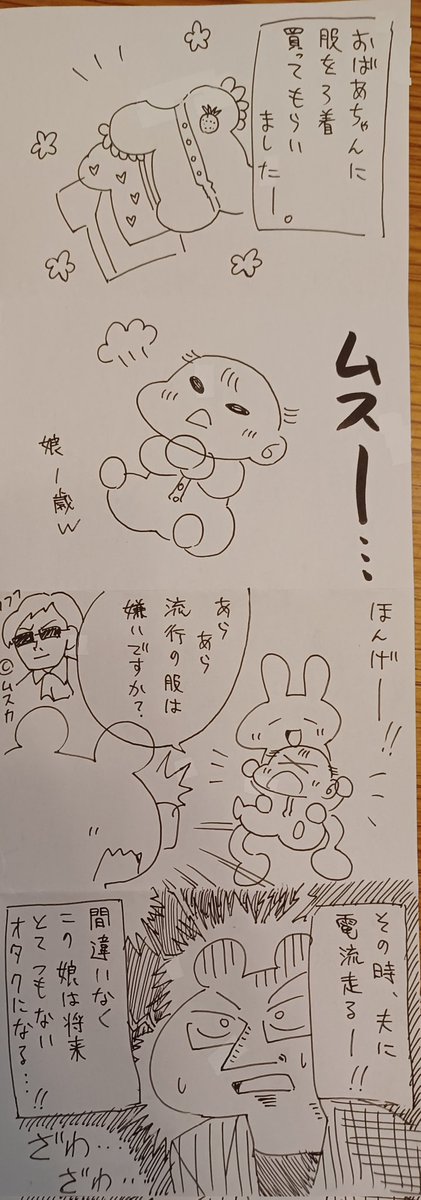 おばあちゃんに
服を3着
買ってもらい
ましたー。
ムスー…
娘1歳w
ほんげー!!
あら
あら
流行の服は
嫌いですか?
©ムスカ
その時、夫に
電流走るー!!
間違いなく
この娘は将来
とてつもない
オタクになる…!!
ざわ…
ざわ…